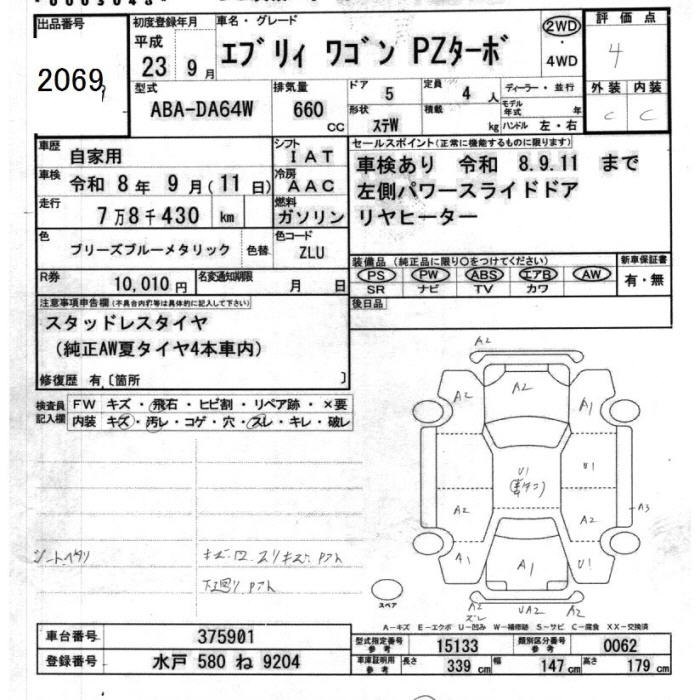 出品番号 初度登録年月 車名・グレード 評価点
2069 平成 23 9月 エブリィ ワゴン PZターボ 2WD・4WD 4
型式 排気量 ドア 定員 ディーラー・並行 外装 内装
ABA-DA64W 660 CC 5 4人 モデル年式 年 C C
形状 ステW 積載 kg ハンドル 左・右
車歴 自家用 シフト IAT
セールスポイント(正常に機能するものに限ります)
車検 令和 8年 9月(11日) 冷房 AAC
車検あり 令和 8.9.11 まで
左側パワースライドドア
走行 7万8千430 km 燃料 ガソリン
リヤヒーター
色 ブリーズブルーメタリック 色替 色コード ZLU
装備品 (純正品に限り○をつけてください) 新車保証書
PS PW ABS エアB AW 有・無
SR ナビ TV カワ
R券 10,010円 名変通知期限 月 日
後日品
注意事項申告欄(不具合内容等は具体的に記入して下さい)
スタッドレスタイヤ
(純正AW夏タイヤ4本車内)
修復歴 有〔箇所 〕
検査員記入欄 FW キズ・飛石・ヒビ割・リペア跡・×要
内装 キズ・汚レ・コゲ・穴・スレ・キレ・破レ
A2
A2 A2 A1
U1 U1
A2 A2 A3
A1 A1 U1
A2 UA2 A2
スレ
シートヘタリ
下回り
スペア
A-キズ E-エクボ U-凹み W-補修跡 S-サビ C-腐食 XX-交換済
車台番号 375901
型式指定番号 参考 15133 類別区分番号 参考 0062
登録番号 水戸 580 ね 9204
車庫証明用 参考 長さ 339 cm 幅 147 cm 高さ 179 cm